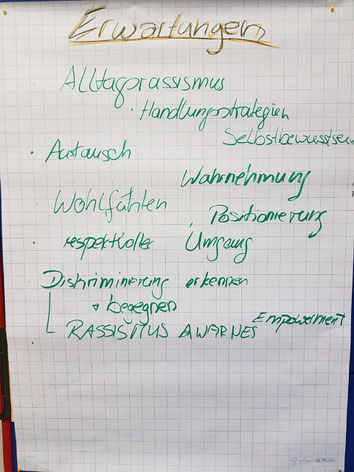 Erwartungen
Alltagsrassismus
· Handlungsstrategien
Selbstbewusstsein
· Austausch
Wahrnehmung
Wohlfühlen
Positionierung
· respektvoller Umgang
Diskriminierung erkennen
+ begegnen
RASSISMUS AWARNES
Empowerment